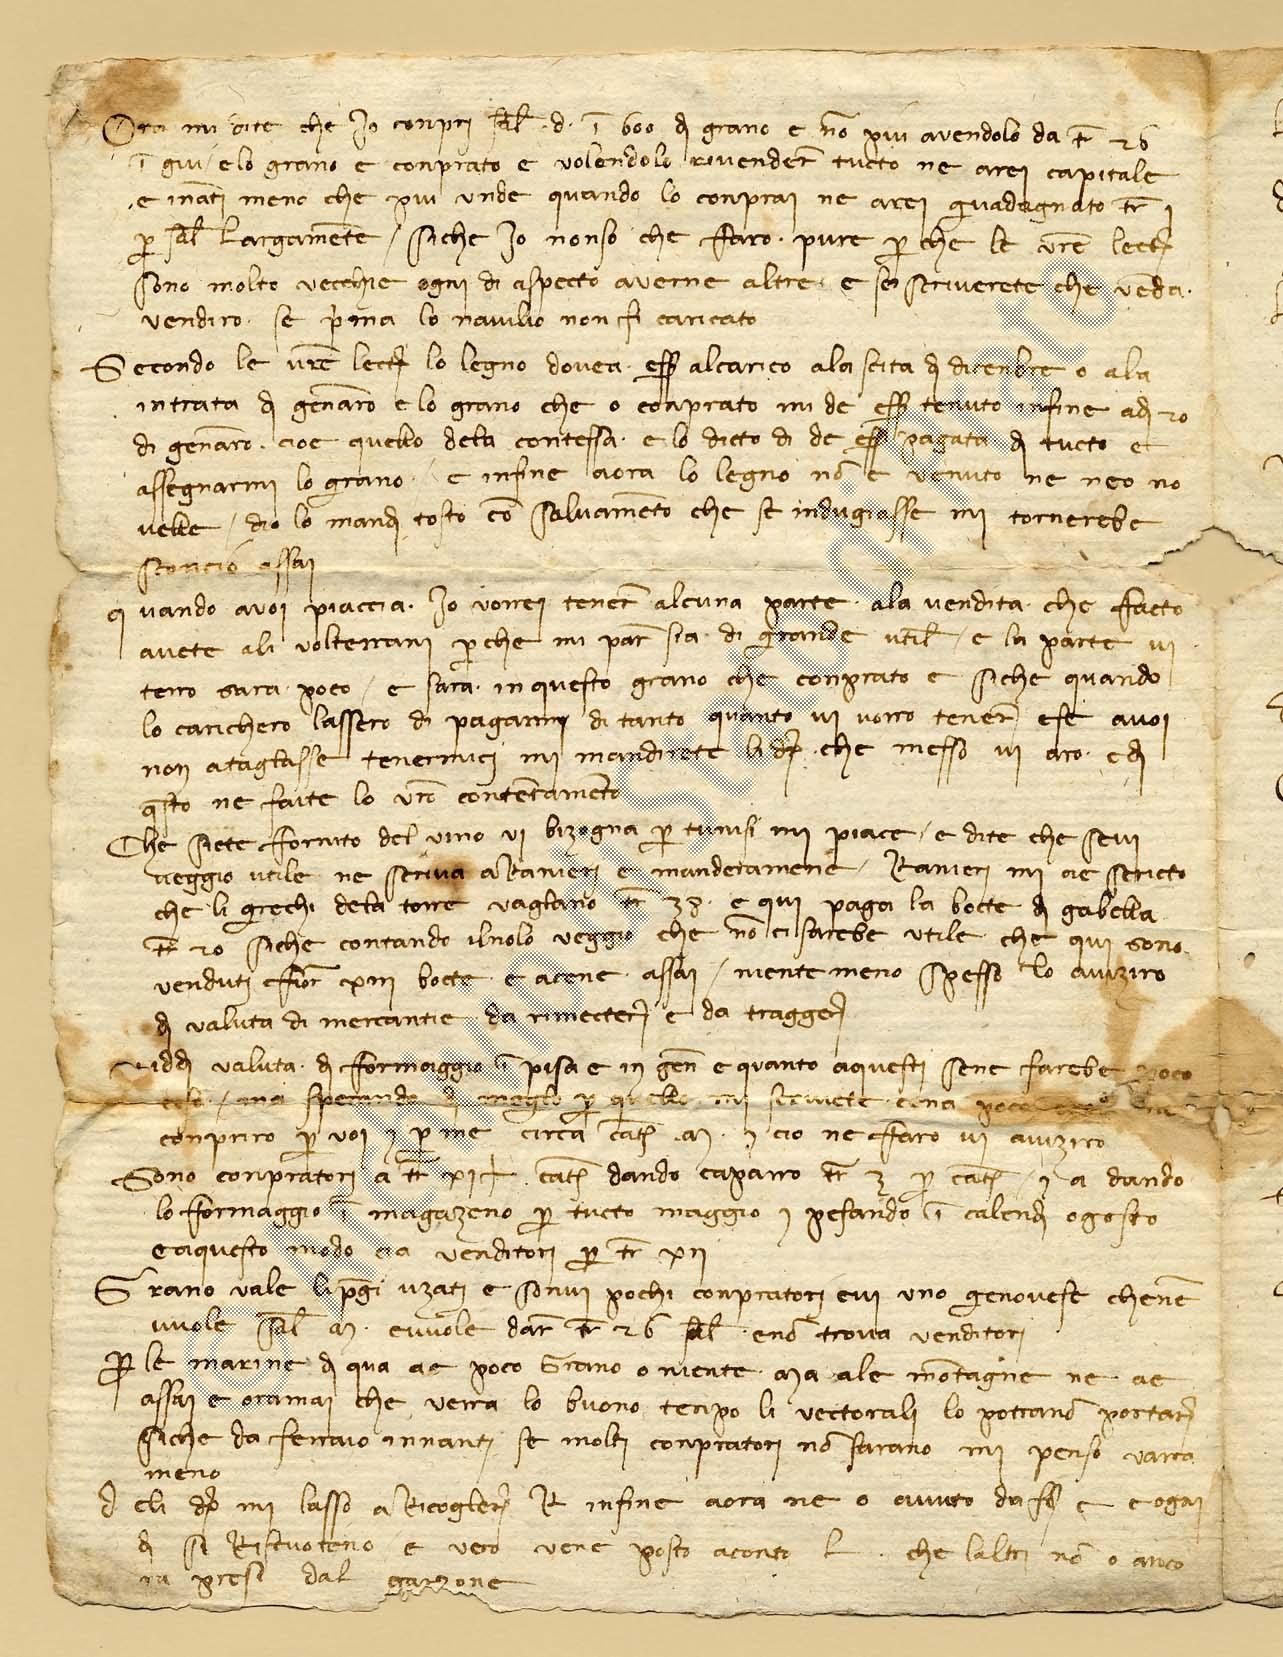 Ora mi dite che Io conpri sal. d. i 600 di grano e no piu avendolo da tr 26
i giu e lo grano e conprato e volendolo rivender tucto ne arei capitale
e inati meno che piu unde quando lo conprai ne arei guadagnato tr 1
p sal Largamente / siche Io nonso che faro. pure p che le vre lectr
sono molto vecchie ogni di aspecto averne altre. e se scriverete che venda.
vendiro. se prima lo navilio non fi caricato
Secondo le vre lectr lo legno dovea. esser alcarico ala scita di dicenbre o ala
intrata di genaro e lo grano che o conprato mi de esser tenuto infine adi 20
di genaro. cioe quello dela contessa. e lo dicto di de esser pagata di tucto e
assegnarmi lo grano. / e infine aora lo legno no e venuto ne neo no
velle / dio lo mandi tosto co salvamento che se indugiasse mi tornerebe
sconcio assai
quando avoi piaccia. Io vorrei tener alcuna parte. ala vendita. che facto
avete ali volterrani p che mi par sia. di grande util / e la parte vi
terro sara. poco / e sara. in questo grano che conprato e siche quando
lo carichero lassero di pagarmi di tanto quanto vi vorro tener e se avoi
non ataglasse tenermici mi mandirete li dr. che messo vi aro. e di
qsto ne faite lo vro contentamento
Che siete fornito del vino vi bizogna p tunisi mi piace / e dite che sevi
veggio utile ne scriva a Ranieri e manderamene / Ranieri mi ae scricto
che li grechi dela torre vaglano tr 38. e qui paga la bocte di gabella
tr 20 siche contando ilnolo veggio che no ci sarebe utile. che qui sono.
venduti fior xiii bocte. e acene. assai / niente meno spesso lo avizero
di valuta di mercantie da rimecter e da tragger
Viddi valuta. di formaggio i pisa e in gen e quanto aquesti sene farebe poco
utile / ma sperando di meglo p quello mi scrivete cena poco
conpriro p voi 7 p me circa cat. m. 7 cio ne faro vi avizero
Sono conpratori a tr xi cat dando caparro tr 3 p cat / 7 a dando
lo formaggio i magazeno p tucto maggio 7 pesando i calendi ogosto
e aquesto modo cia venditori p tr xii
Grano vale li pgi uzati e sonvi pochi conpratori evi uno genovese chene
vuole sal m. evuole dar tr 26 sal. eno trova venditori
Per le marine di qua ae poco Grano o niente. ma ale montagne ne ae
assai e oramai che verra lo buono tenpo li vectorali lo potrano portar
siche da ferraio innanti se molti conpratori no sarano mi penso varra
meno
Deli dr mi lasso a Ricogler R infine aora ne o avuto da e ogni
di si Riscuoteno / e vero vene posto aconto l. che laltri no o anco
ra presi dal garzone